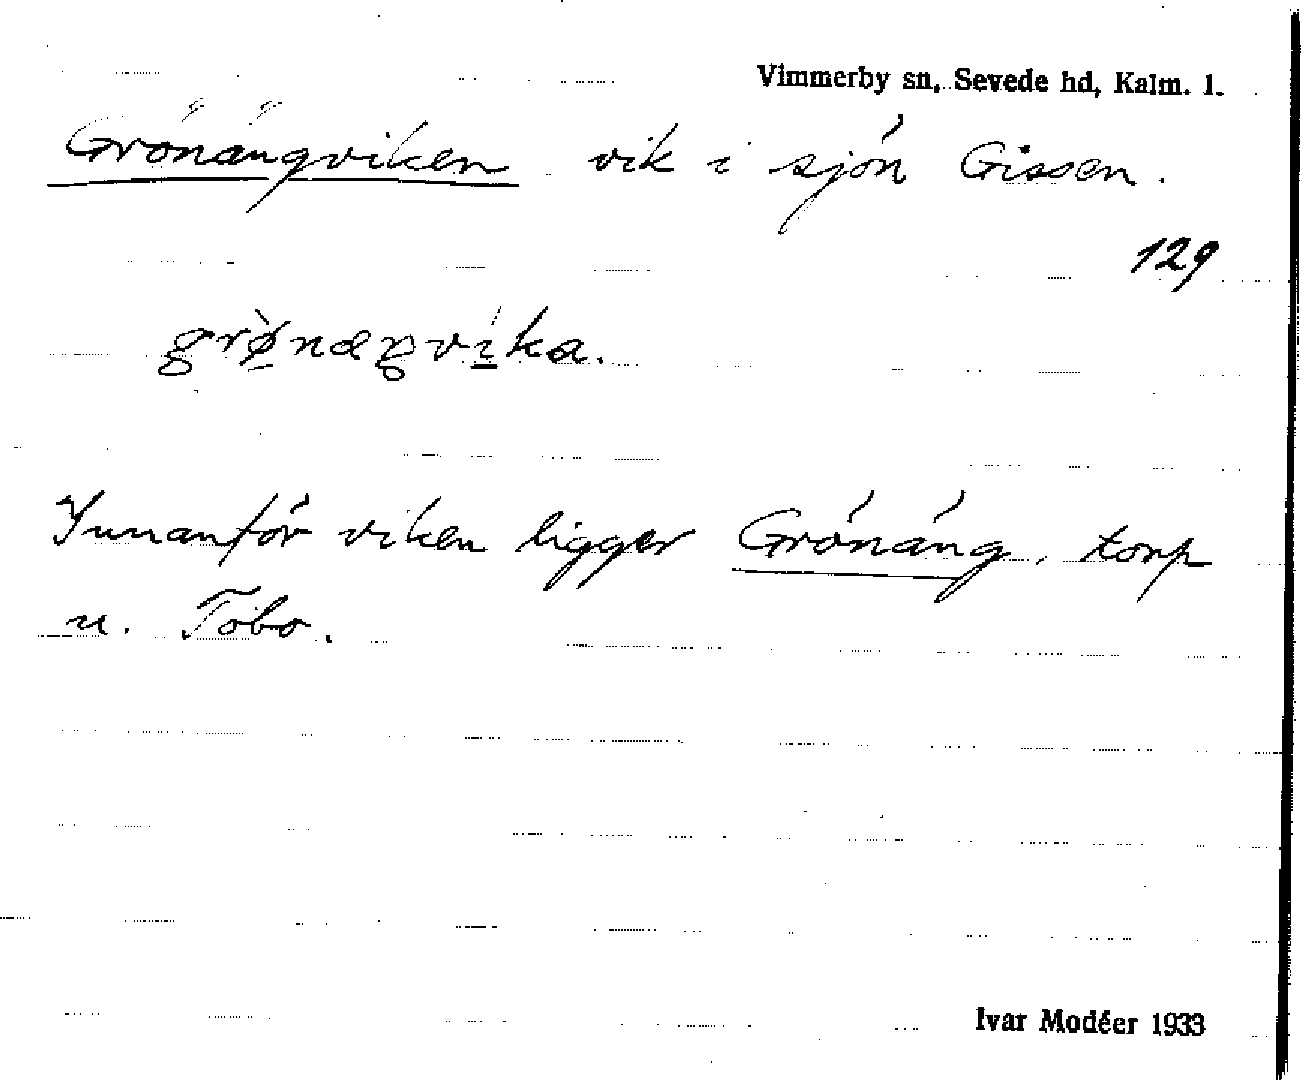 Vimmerby sn, Sevede hd, Kalm. l.
Grönängviken vik i sjön Gissen.
129
grø̀næŋvika.
Innanför viken ligger Grönäng, torp
u. Tobo.
Ivar Modéer 1933